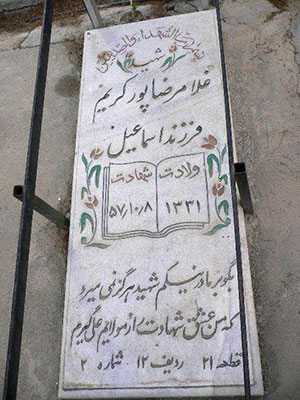 شهید
غلامرضا پور کریم
فرزند اسماعیل
ولادت شهادت
۱۳۳۱ ۵۷/۱۰/۸
بگو بر مادر نیکم شهید هرگز نمی میرد
که من عشق شهادت را ز مولایم علی گیرم
قطعه ۲۱ ردیف ۱۲ شماره ۲